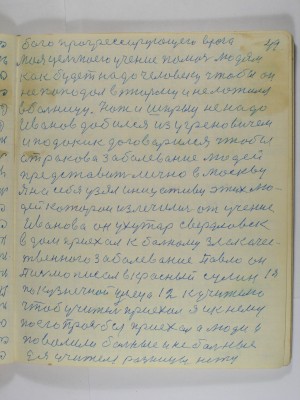 бого прогрессирующего врага 49
моя целкого учение помоч людям
как будет надо человеку чтобы он
не попадал в тюрму и не ложился
в болницу. Нож и шприц не надо
Иванов добился из учреновичем
и подокис договорился чтобы
от ракова заболевание людей
представит лично в москву
Я на себя узял инициативу этих лю-
дей которои излечилис от учение
Иванова он ухутар свердловск
в дом приехал к болному злокачес-
твенного заболевание Павло он
писмо писал в Красный сулин 13
по кузнечной улице 12 к учителю
чтоб учител приехал Я к нему
посго просбы приехал а люди и
повалили болные и не болные
Для учителя разницы нету